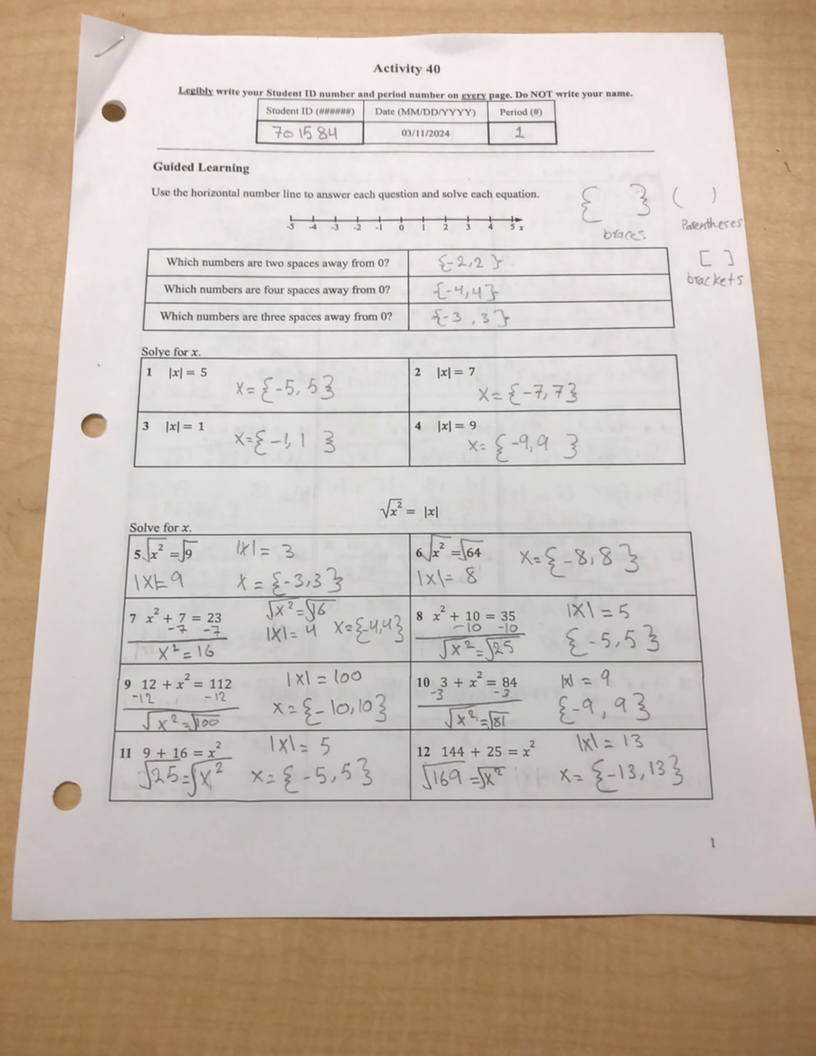 Activity 40
Legibly write your Student ID number and period number on every page. Do NOT write your name.
Student ID (######) Date (MM/DD/YYYY) Period (#)
701584 03/11/2024 1
Guided Learning
Use the horizontal number line to answer each question and solve each equation.
{ } ( )
braces Parentheses
-5 -4 -3 -2 -1 0 1 2 3 4 5 x
[ ]
brackets
Which numbers are two spaces away from 0? {-2,2}
Which numbers are four spaces away from 0? {-4,4}
Which numbers are three spaces away from 0? {-3,3}
Solve for x.
1 |x| = 5
x={-5,5}
2 |x| = 7
x={-7,7}
3 |x| = 1
x={-1,1}
4 |x| = 9
x={-9,9}
√x² = |x|
Solve for x.
5. √x² = √9 |x| = 3
|x|=9 x={-3,3}
6. √x² = √64 x={-8,8}
|x|= 8
7 x² + 7 = 23 √x²=√16
-7 -7 |x|=4 x={-4,4}
x²=16
8 x² + 10 = 35 |x|=5
-10 -10
√x²=√25 {-5,5}
9 12 + x² = 112 |x|=100
-12 -12
√x²=√100 x={-10,10}
10 3 + x² = 84 |x|=9
-3 -3
√x²=√81 {-9,9}
11 9 + 16 = x² |x|=5
√25=√x² x={-5,5}
12 144 + 25 = x² |x|=13
√169=√x² x={-13,13}
1